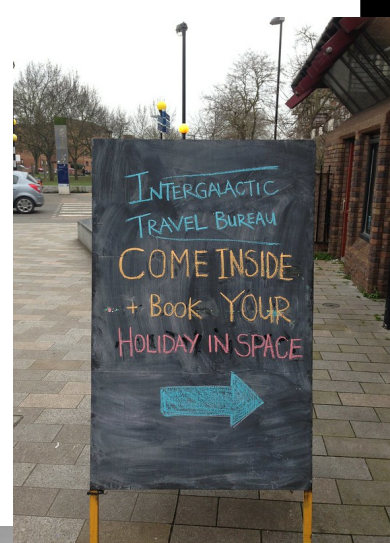 INTERGALACTIC
TRAVEL BUREAU
COME INSIDE
+ BOOK YOUR
HOLIDAY IN SPACE